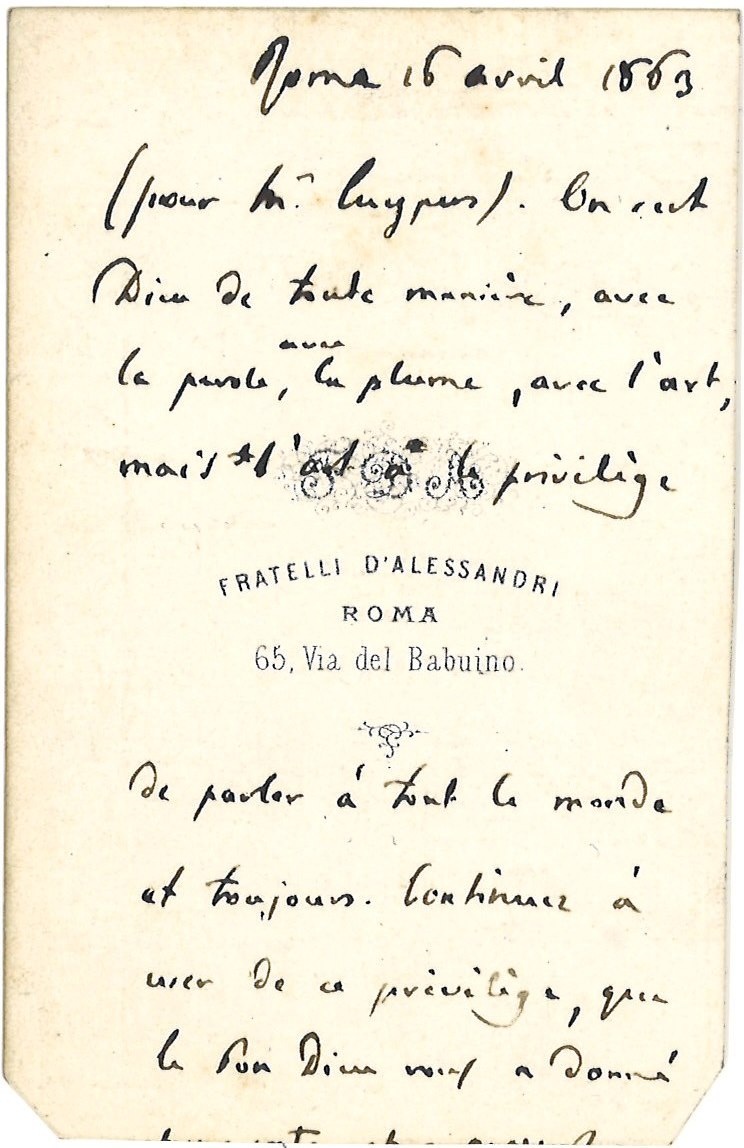 Roma 16 avril 1863
(pour Mr. Cuypers). On sert
Dieu de toute manière, avec
la parole, avec la plume, avec l'art,
mais l'art a le privilège
FRATELLI D'ALESSANDRI
ROMA
65, Via del Babuino.
de parler à tout le monde
et toujours. Continuez à
user de ce privilège, que
le bon Dieu vous a donné